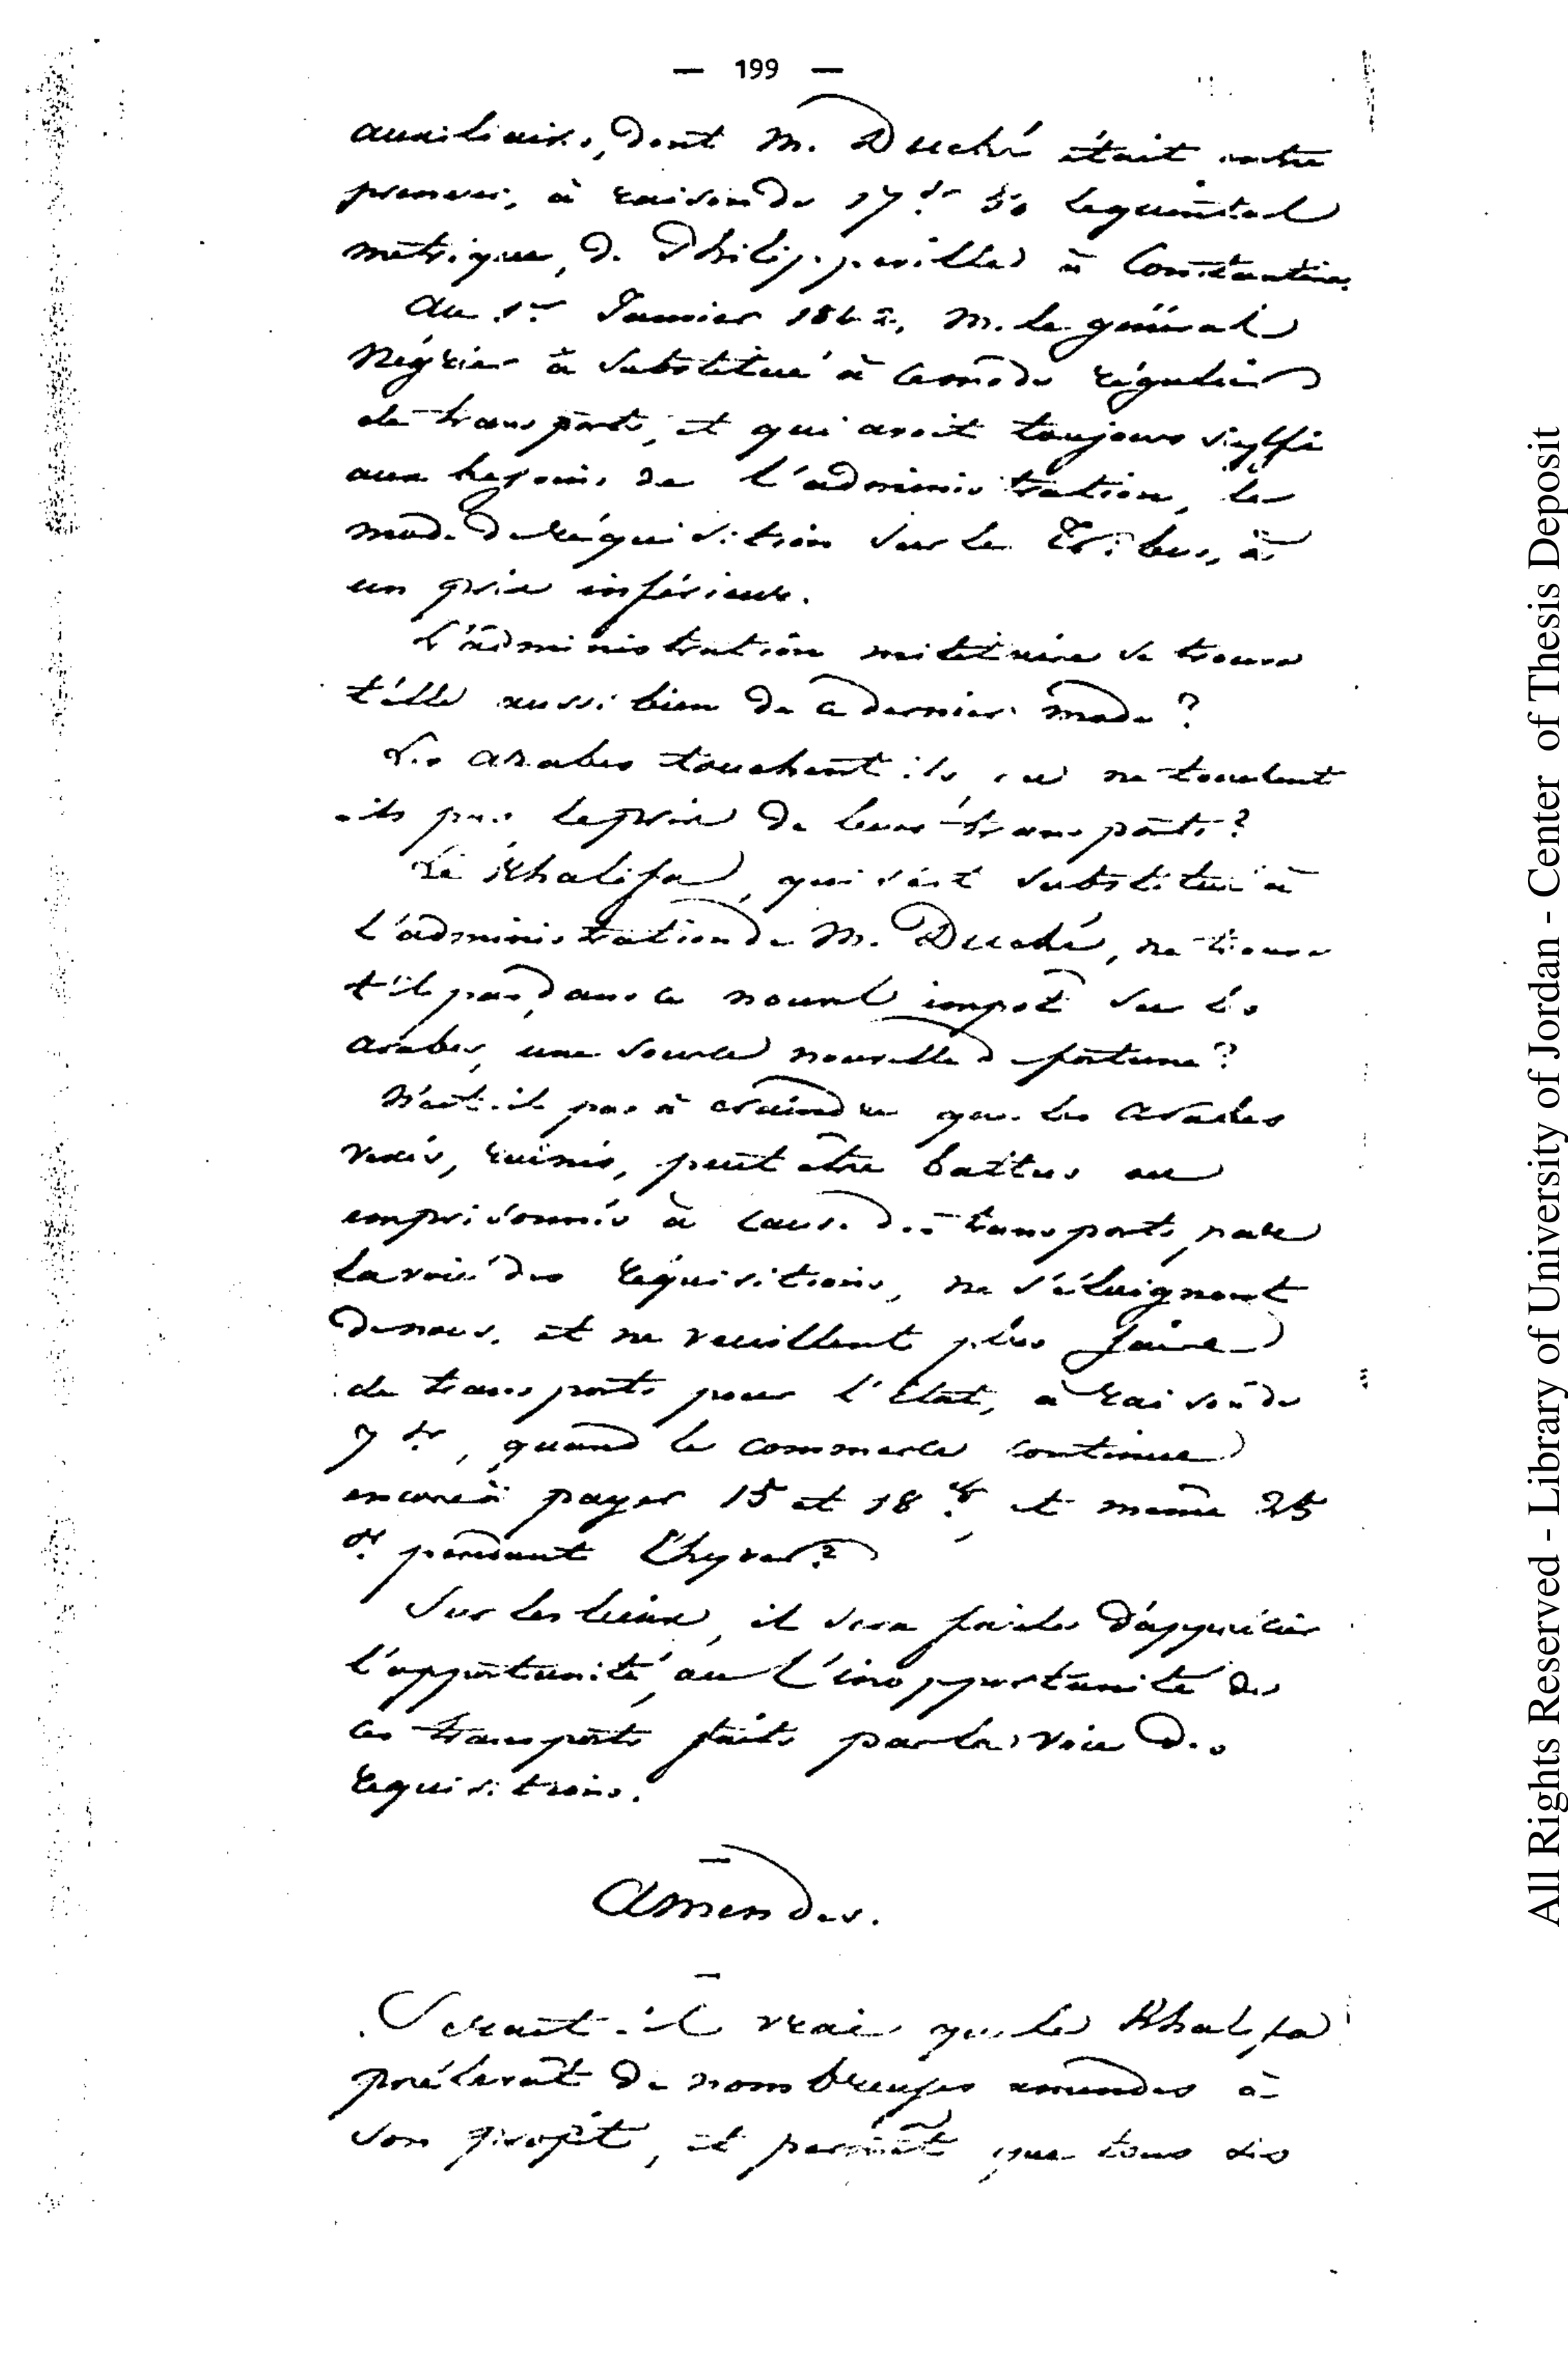 — 199 —
auxiliaires, dont M. Duché était entre
preneur, à raison de 17 fr 50 le quintal
métrique, de Philippeville à Constantine.
Au 1er Janvier 1842, M. le général
Négrier a substitué à ce mode régulier
de transports, et qui avait toujours suffi
aux besoins de l'administration, le
mode de réquisition sur les Tribus, à
un prix inférieur.
L'administration militaire se trouve
t'elle aussi bien de ce dernier mode ?
Les arabes touchent ils, ou ne touchent
-ils pas le prix de leurs transports ?
Le Khalifa, qui s'est substitué à
l'administration de M. Duché, ne trouve
t'il pas, dans ce nouvel impôt sur les
arabes, une source nouvelle de fortune ?
N'est-il pas à craindre que les arabes
vexés, ruinés, peut être battus ou
emprisonnés à cause des transports par
la voie des réquisitions, ne s'éloignent
de nous, et ne veuillent plus faire
de transports pour l'Etat, à raison de
7 fr, quand le commerce continue
encore à payer 15 et 18 fr, et même 25
fr pendant l'hyver ?
Sur les lieux, il sera facile d'apprécier
l'opportunité, ou l'inopportunité de
ces transports faits par la voie des
requisitions.
Amendes.
Serait-il vrai que le Khalifa
prélevât de nombreuses amendes à
son profit, et permît que tous les
All Rights Reserved - Library of University of Jordan - Center of Thesis Deposit